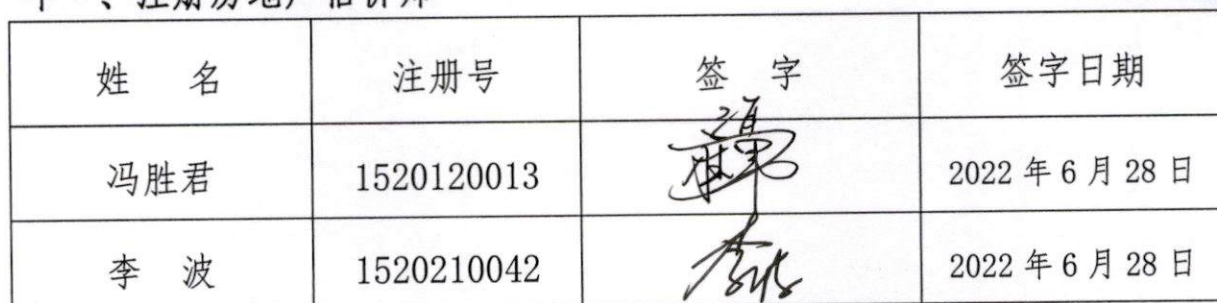 、注册房地产估价师
姓 名 注册号 签 字 签字日期
冯胜君 1520120013 冯胜君 2022年6月28日
李 波 1520210042 李波 2022年6月28日